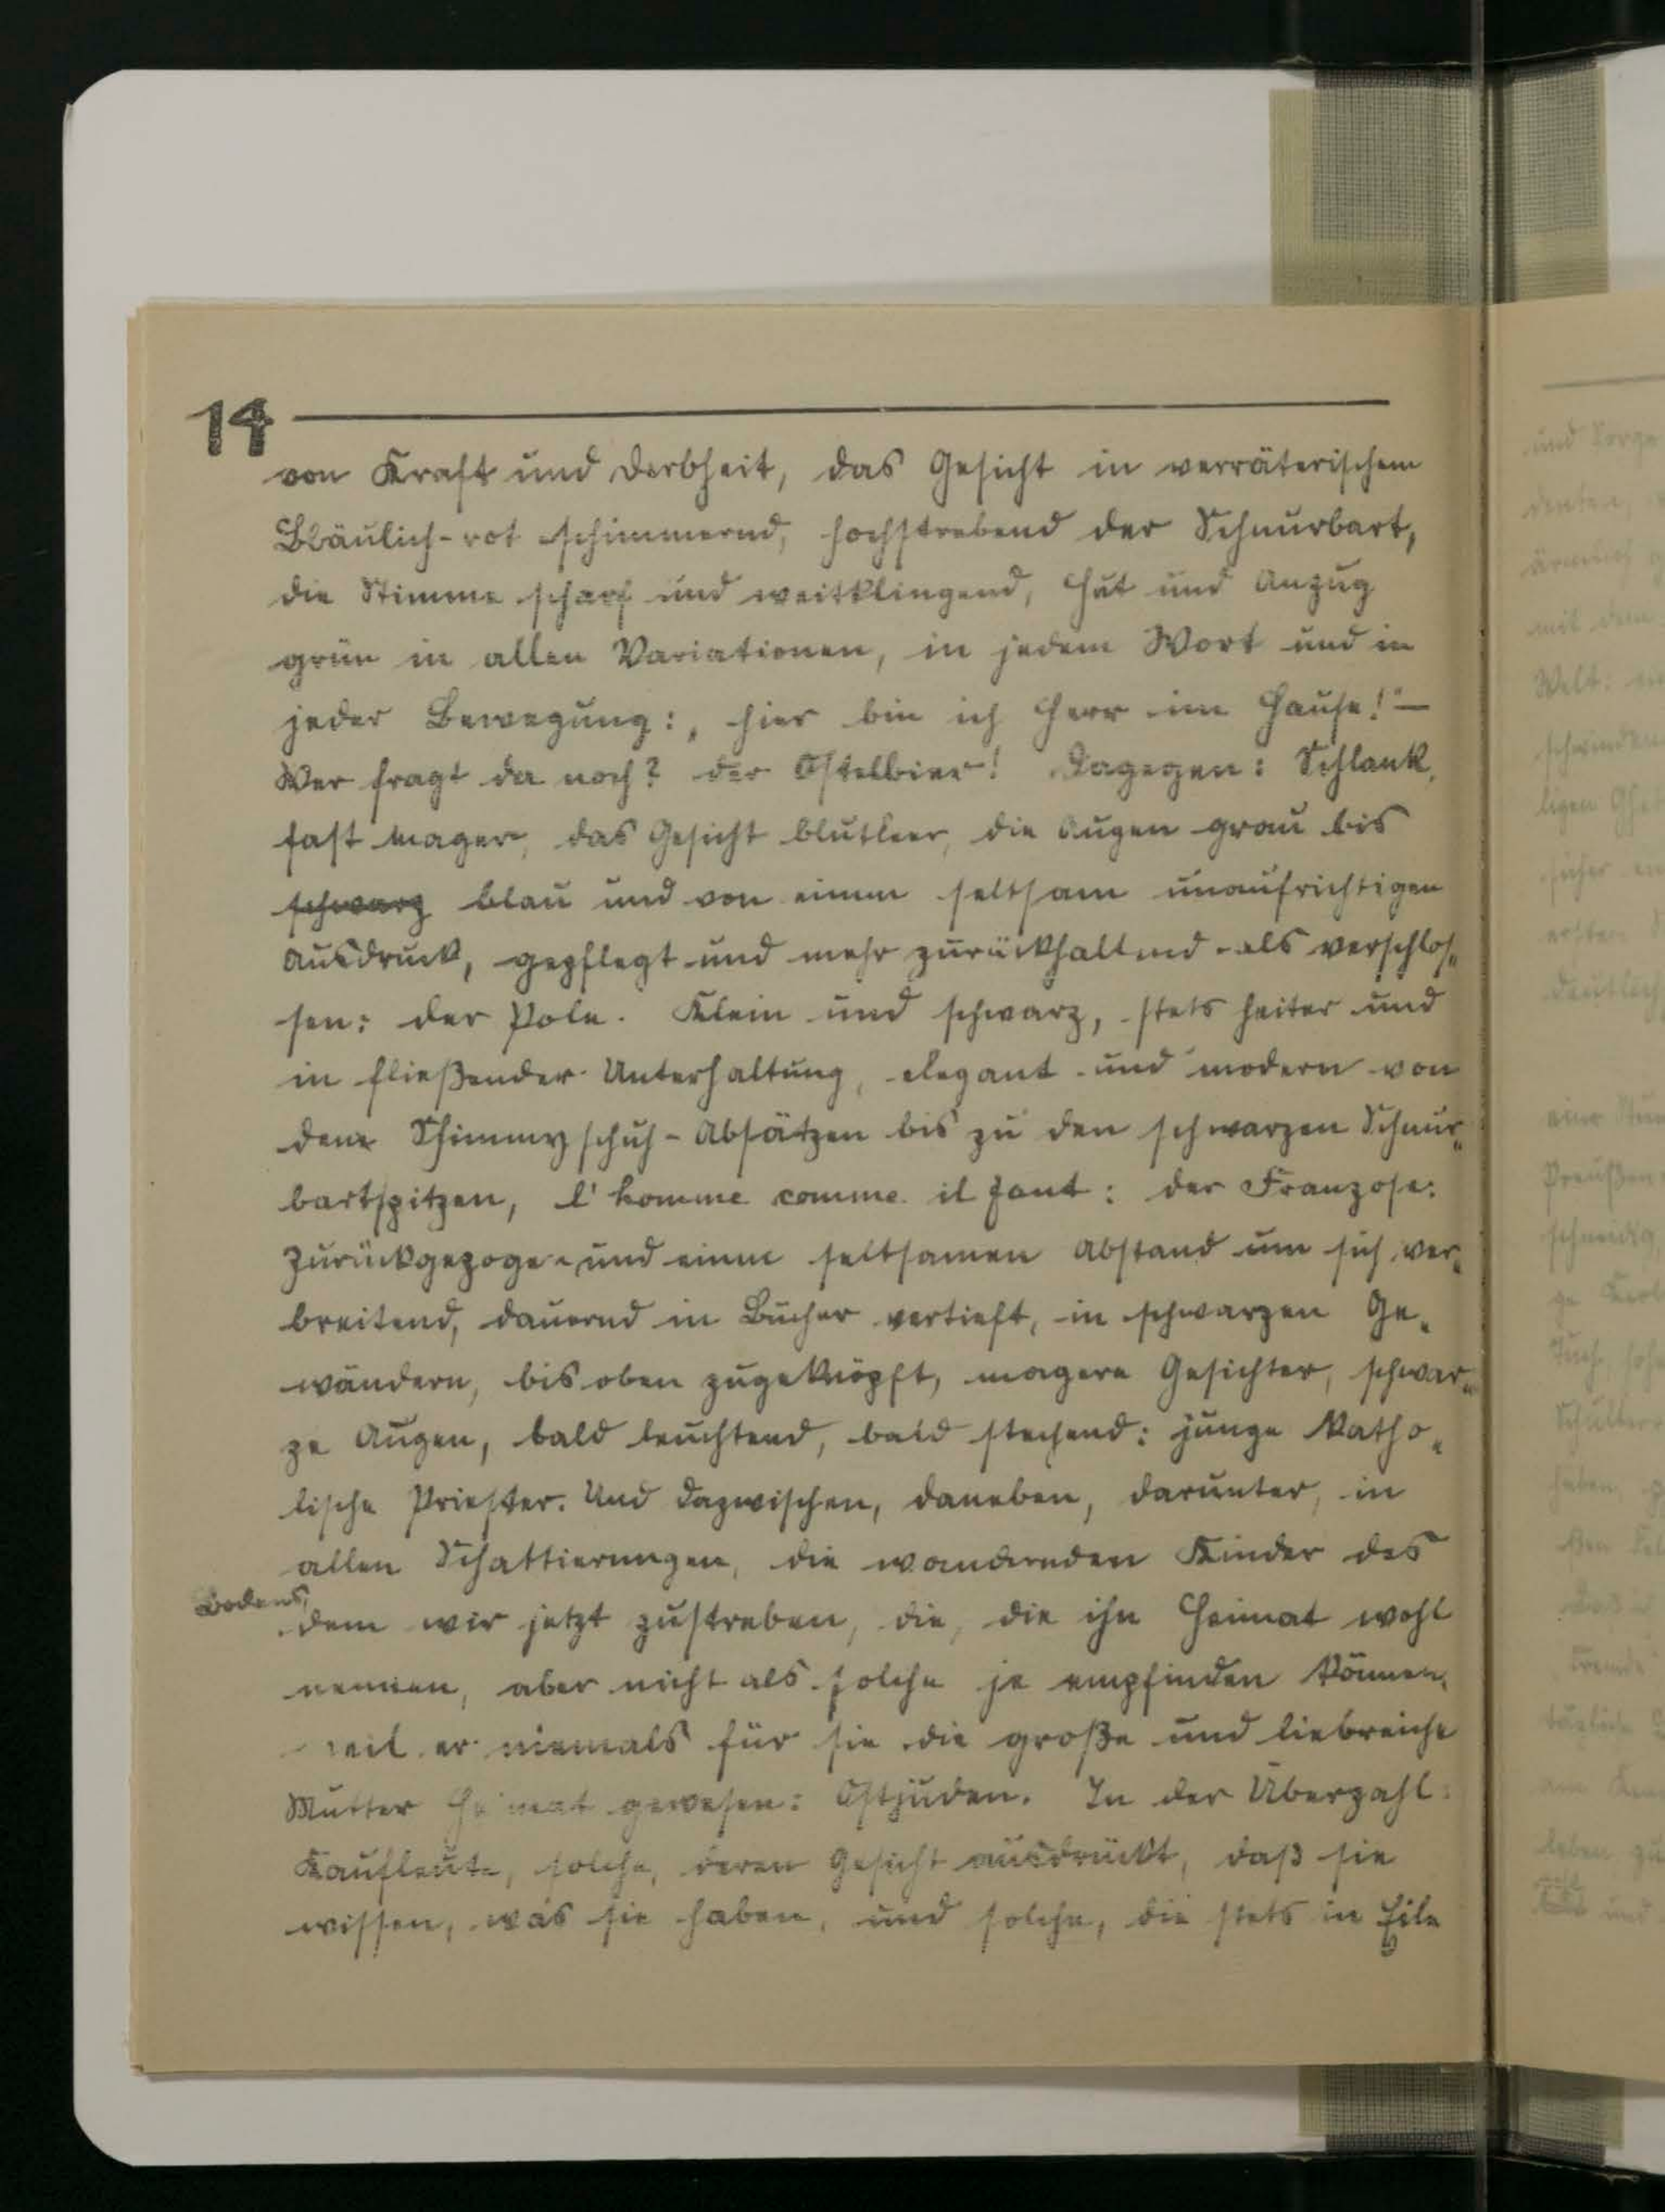 14
von Kraft und Derbheit, das Gesicht in verräterischem
Bläulich-rot schimmernd, hochstrebend der Schnurbart,
die Stimme scharf und weitklingend, Hut und Anzug
grün in allen Variationen, in jedem Wort und in
jeder Bewegung: „hier bin ich Herr im Hause!" —
Wer fragt da noch? der Ostelbier! Dagegen: Schlank,
fast mager, das Gesicht blutleer, die Augen grau bis
schwarz blau und von einem seltsam unaufrichtigen
Ausdruck, gepflegt und mehr zurückhaltend als verschlos„
sen: der Pole. Klein und schwarz, stets heiter und
in fließender Unterhaltung, elegant und modern von
den Schimmyschuh-Absätzen bis zu den schwarzen Schnur„
bartspitzen, l'homme comme il faut: der Franzose:
Zurückgezogen und einen seltsamen Abstand um sich ver„
breitend, dauernd in Bücher vertieft, in schwarzen Ge„
wändern, bis oben zugeknöpft, magere Gesichter, schwar„
ze Augen, bald leuchtend, bald stechend: junge Katho„
lische Priester. Und dazwischen, daneben, darunter, in
allen Schattierungen, die wandernden Kinder des
Bodens,
dem wir jetzt zustreben, die, die ihn Heimat wohl
nennen, aber nicht als solche je empfinden können,
weil er niemals für sie die große und liebreiche
Mutter Heimat gewesen: Ostjuden. In der Überzahl:
Kaufleute, solche, deren Gesicht ausdrückt, daß sie
wissen, was sie haben, und solche, die stets in Eile